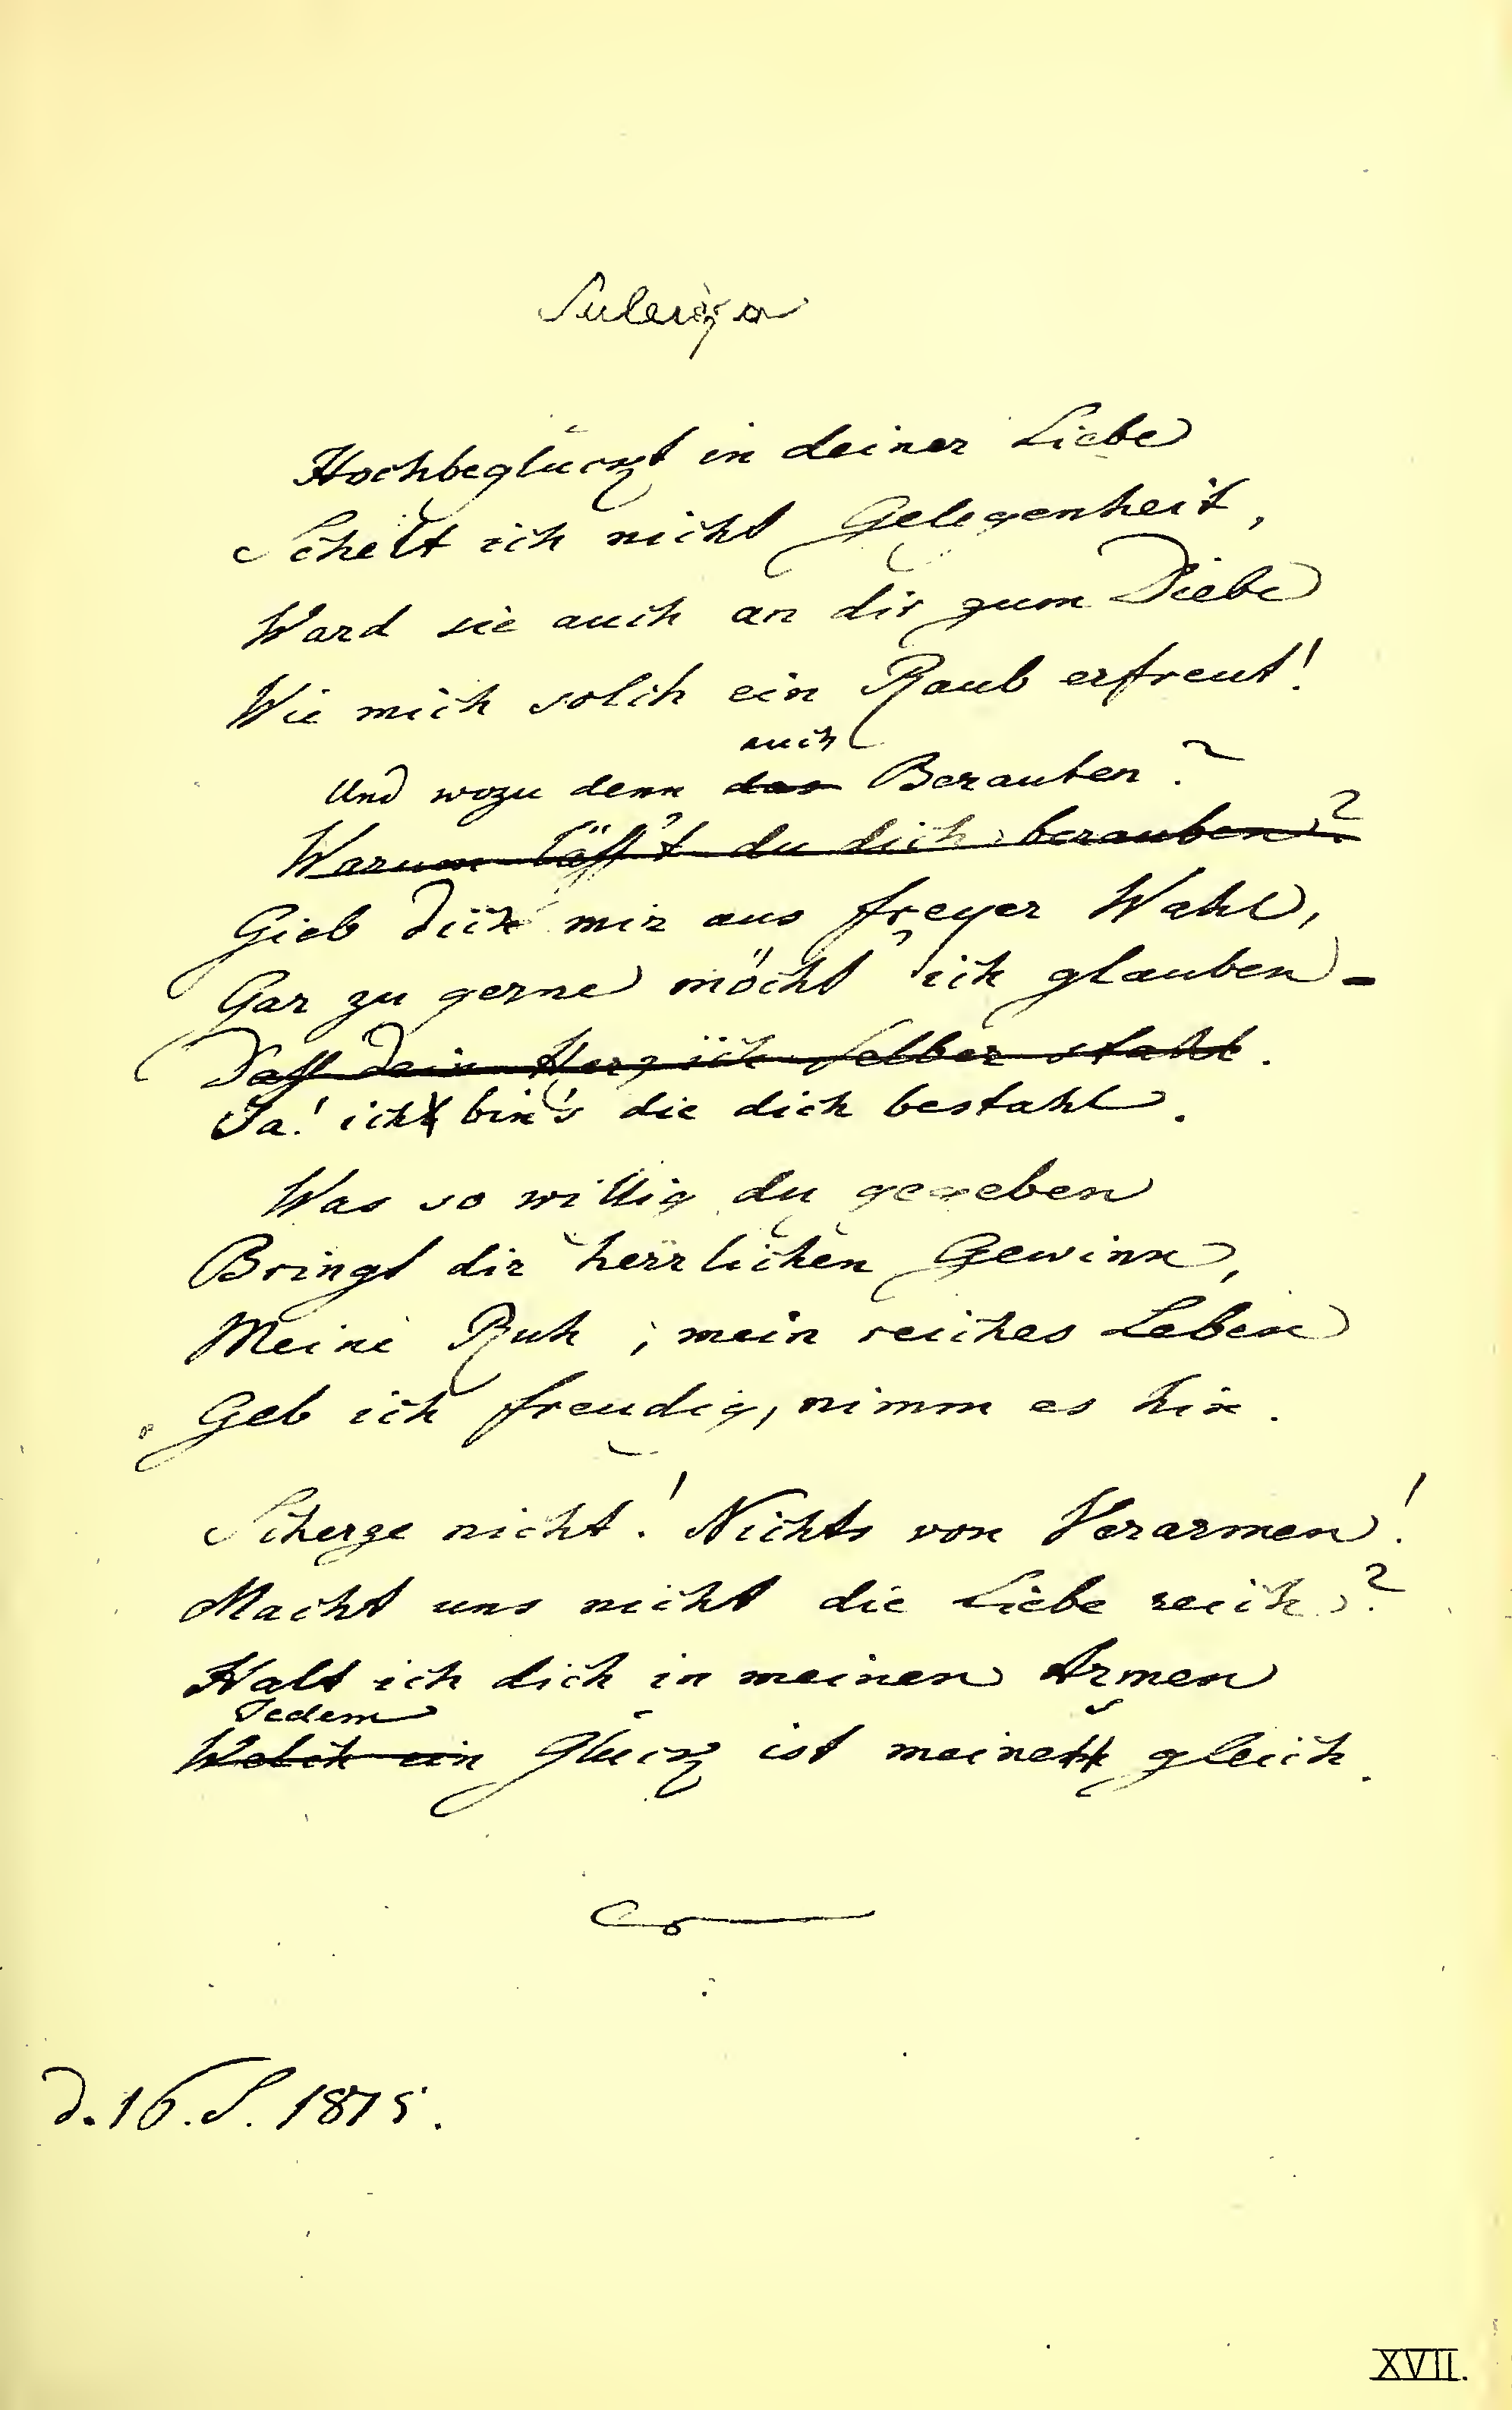 Suleika
Hochbeglückt in deiner Liebe
Schelt ich nicht Gelegenheit,
Ward sie auch an dir zum Diebe
Wie mich solch ein Raub erfreut!
auch
Und wozu denn das Berauben?
Warum läss't du dich berauben?
Gieb dich mir aus freyer Wahl,
Gar zu gerne möcht' ich glauben -
Dass dein Herz ich selber stahl.
Ja! ich bin's die dich bestahl.
Was so willig du gegeben
Bringt dir herrlichen Gewinn,
Meine Ruh, mein reiches Leben
Geb ich freudig, nimm es hin.
Scherze nicht! Nichts von Verarmen!
Macht uns nicht die Liebe reich?
Halt ich dich in meinen Armen
Jedem
Welch ein Glück ist meines gleich.
d. 16. S. 1815.
XVII.